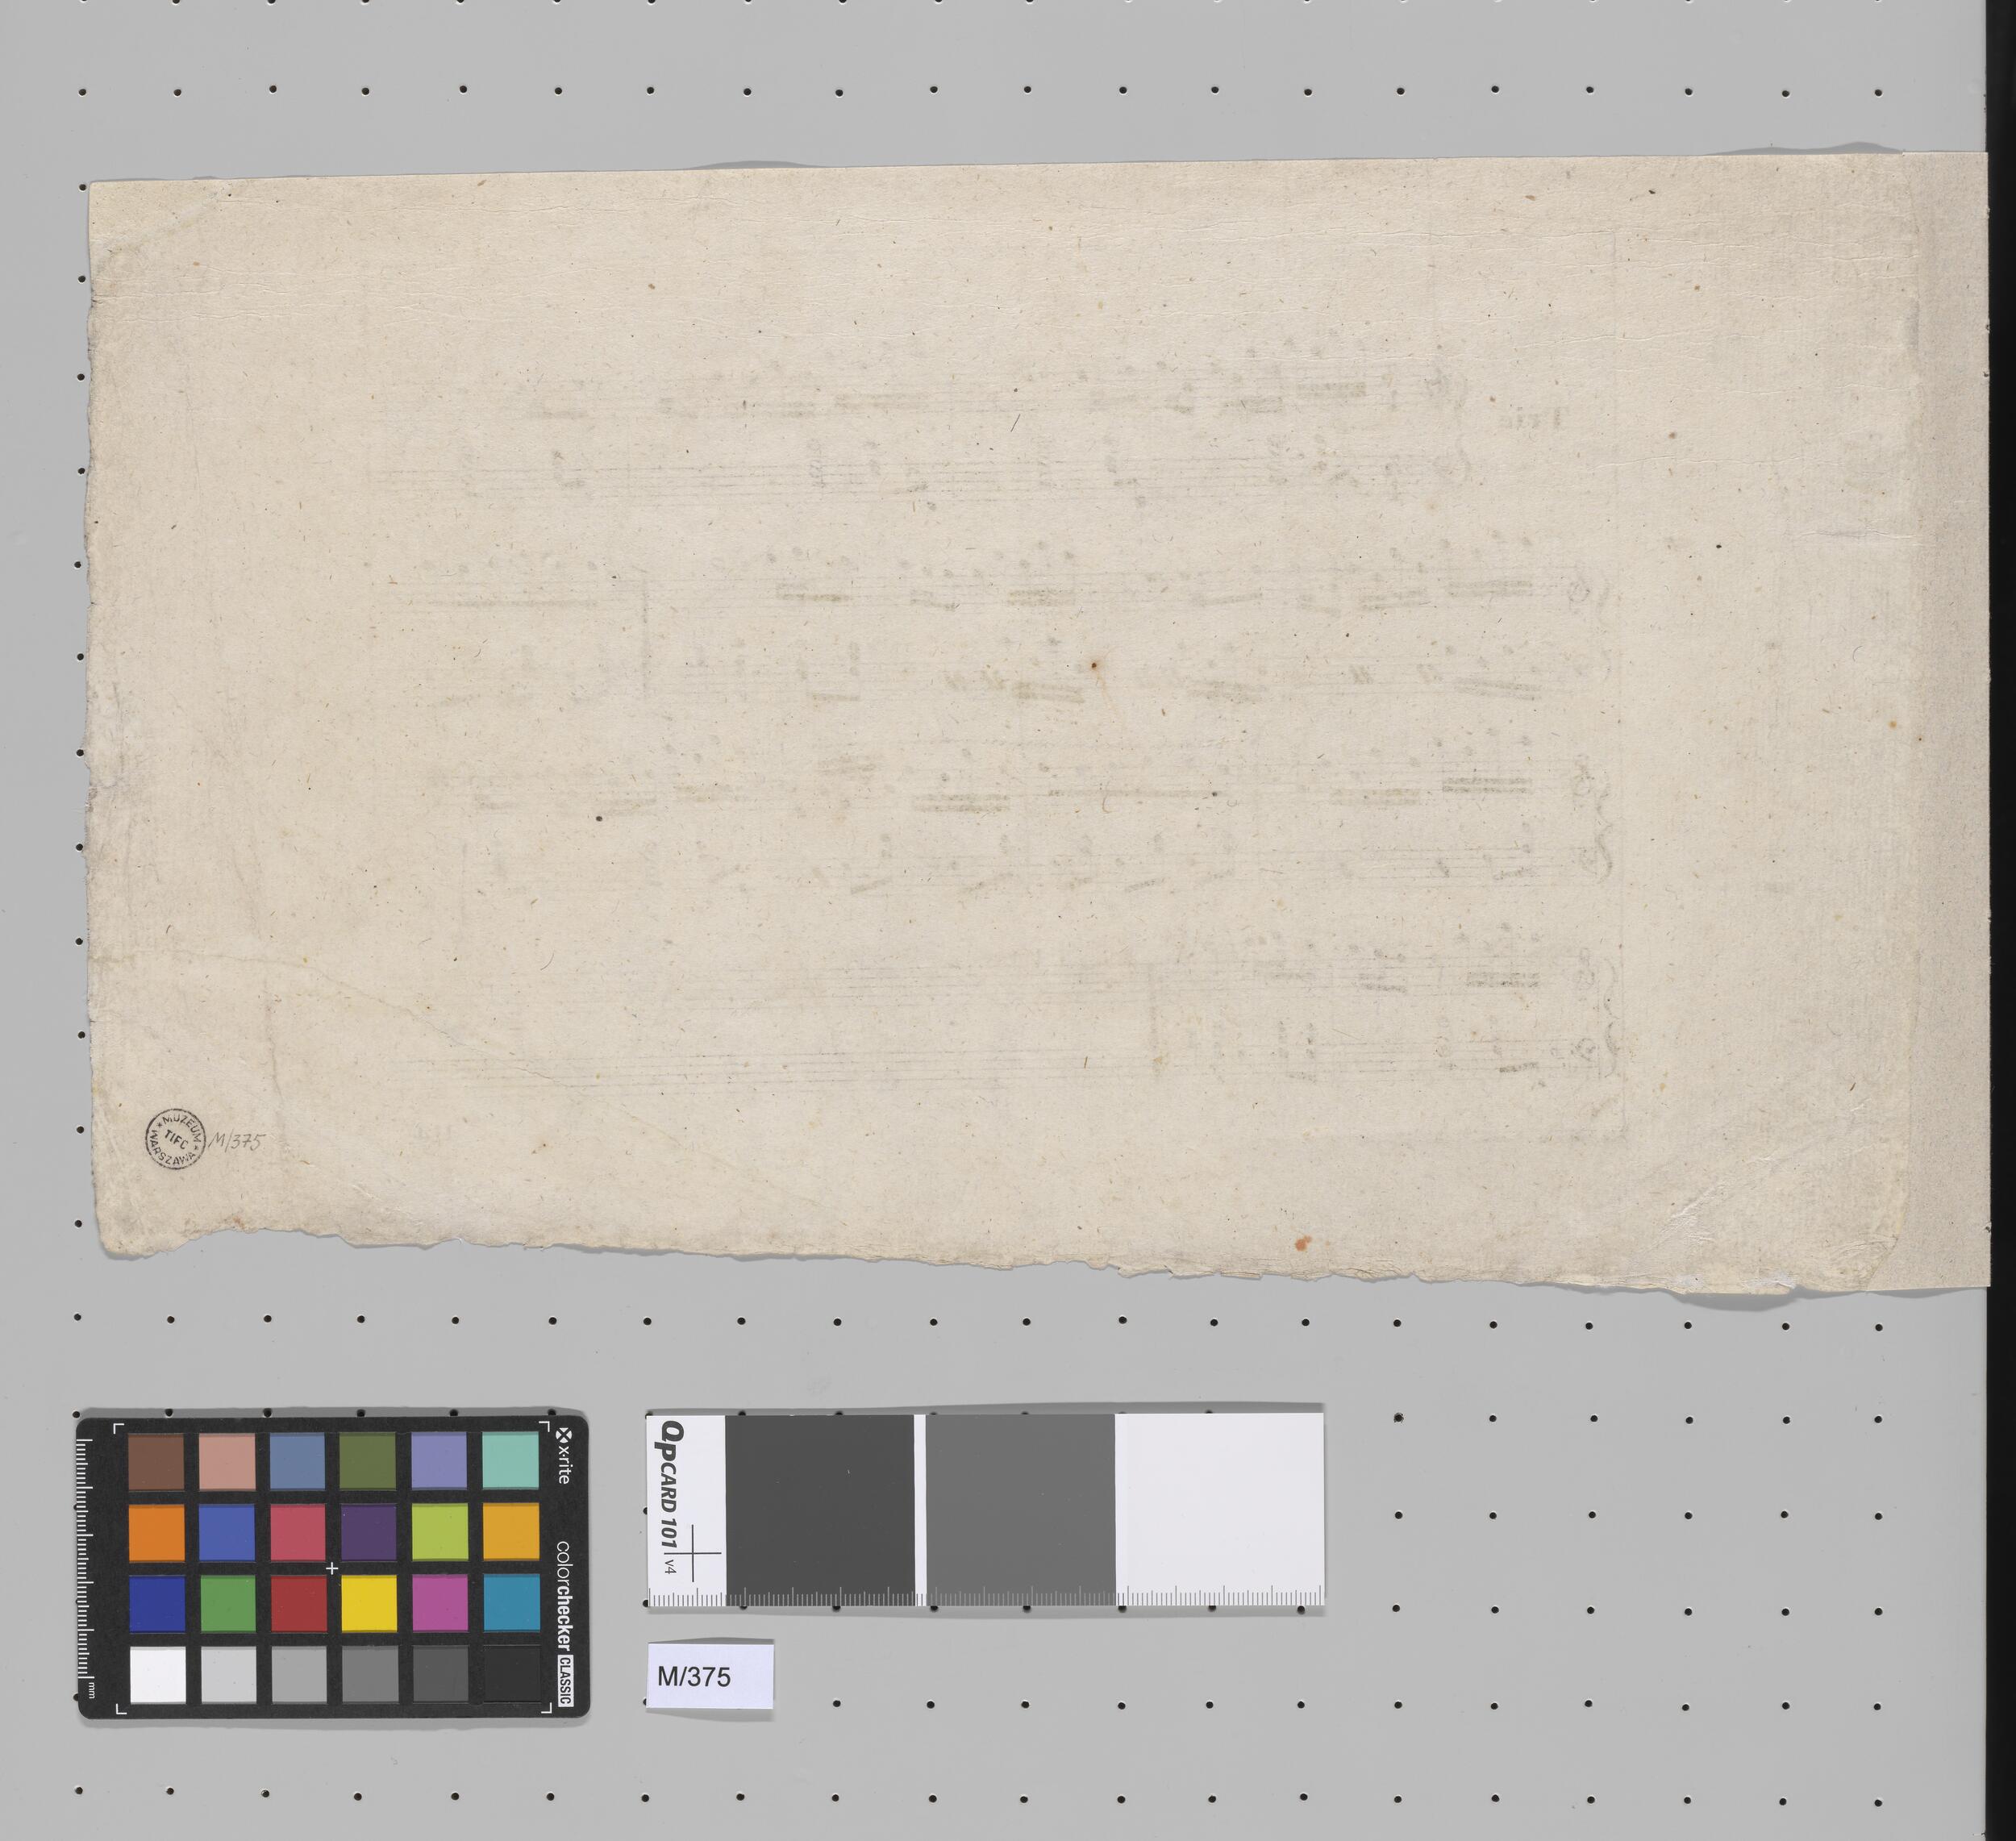 MUZEUM
TIFC
WARSZAWA
M/375
x·rite
colorchecker CLASSIC
mm
QPCARD 101 v4
M/375